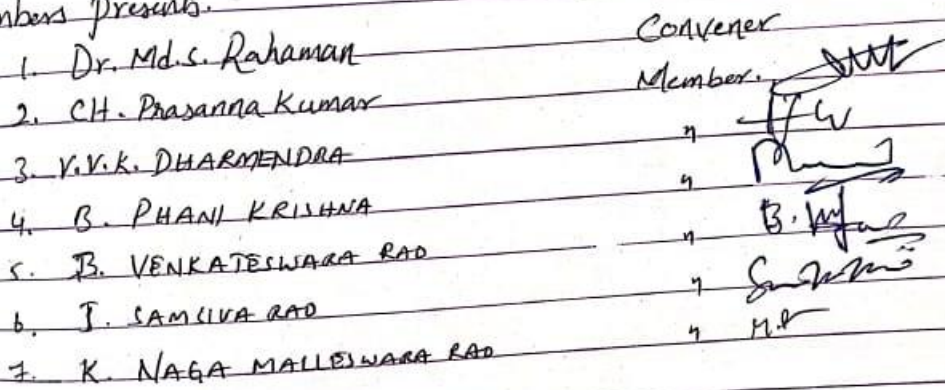 mbers Presents.
1. Dr. Md.S. Rahaman Convener
2. CH. Prasanna Kumar Member.
3. V.V.K. DHARMENDRA "
4. B. PHANI KRISHNA "
5. B. VENKATESWARA RAO "
6. I. SAMSIVA RAO "
7. K. NAGA MALLESWARA RAO "